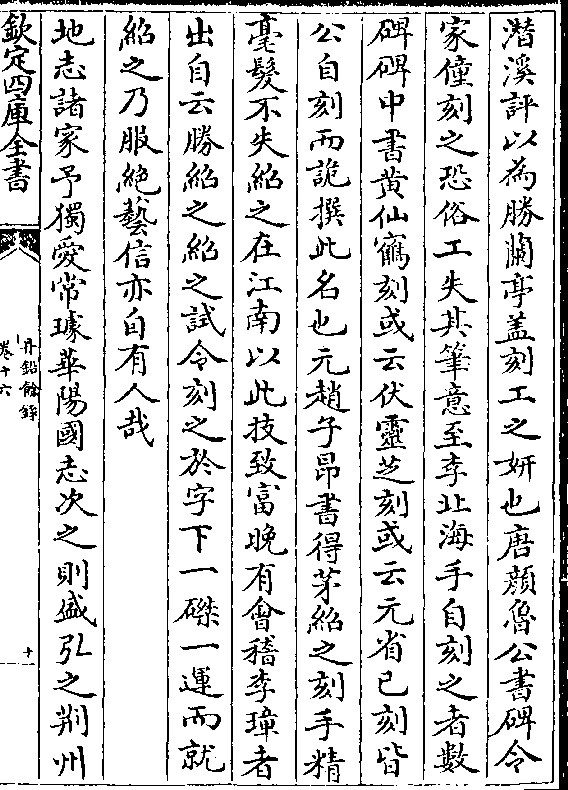 潜溪評以為勝蘭亭盖刻工之妍也唐顔魯公書碑令
家僮刻之恐俗工失其筆意至李北海手自刻之者數
碑碑中書黄仙鶴刻或云伏靈芝刻或云元省已刻皆
公自刻而詭撰此名也元趙子昂書得茅紹之刻手精
毫髮不失紹之在江南以此技致富晚有會稽李璋者
出自云勝紹之紹之試令刻之於字下一磔一運而就
紹之乃服絶藝信亦自有人哉
地志諸家予獨愛常璩華陽國志次之則盛弘之荆州
欽定四庫全書
丹鉛餘錄
卷十六
十一